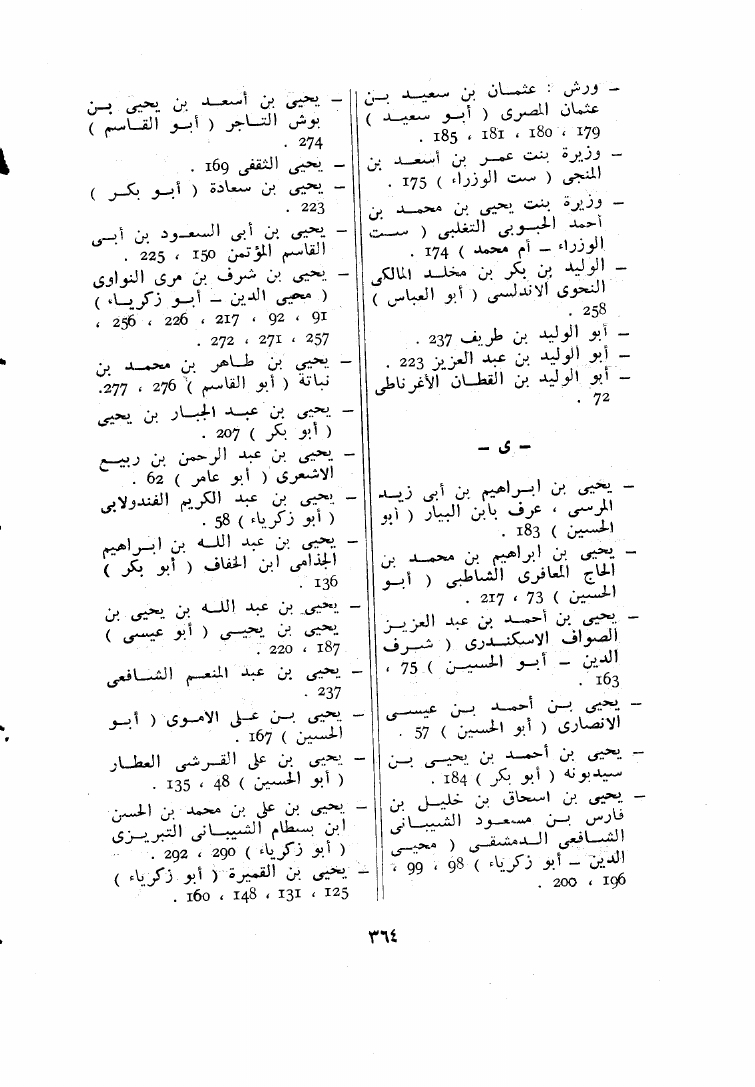 – ورش : عثمـان بن سعيـد بـن
عثمان المصرى ( أبـو سعيد )
179 ، 180 ، 181 ، 185 .
– وزيرة بنت عمـر بن أسعـد بن
المنجى ( ست الوزراء ) 175 .
– وزيرة بنت يحيى بن محمـد بن
أحمد الحبـوبى التغلبى ( ســت
الوزراء – أم محمد ) 174 .
– الوليد بن بكر بن مخلـد المالكى
النحوى الاندلسى ( أبو العباس )
258 .
– أبو الوليد بن طريف 237 .
– أبو الوليد بن عبد العزيز 223 .
– أبو الوليد بن القطان الأغرناطى
72 .
– ى –
– يحيى بن ابـراهيم بن أبى زيـد
المرسى ، عرف بابن البياز ( أبو
الحسين ) 183 .
– يحيى بن ابراهيم بن محمـد بن
الحاج المعافرى الشاطبى ( أبـو
الحسين ) 73 ، 217 .
– يحيى بن أحمـد بن عبد العزيـز
الصواف الاسكنـدرى ( شـرف
الدين – أبـو الحسيـن ) 75 ،
163 .
– يحيى بـن أحمـد بـن عيسـى
الانصارى ( أبو الحسين ) 57 .
– يحيى بن أحمـد بن يحيـى بـن
سيدبونة ( أبو بكر ) 184 .
– يحيى بن اسحاق بن خليـل بن
فارس بـن مسعـود الشيبـانى
الشـافعى الـدمشقـى ( محيـى
الدين – أبو زكرياء ) 98 ، 99 ،
196 ، 200 .
– يحيى بن أسعـد بن يحيى بـن
بوش التـاجر ( أبـو القـاسم )
274 .
– يحيى الثقفى 169 .
– يحيى بن سعادة ( أبـو بكـر )
223 .
– يحيى بن أبى السعـود بن أبـى
القاسم المؤتمن 150 ، 225 .
– يحيى بن شرف بن مرى النواوى
( محيى الدين – أبـو زكريـاء )
91 ، 92 ، 217 ، 226 ، 256 ،
257 ، 271 ، 272 .
– يحيى بن طـاهر بن محمـد بن
نباتة ( أبو القاسم ) 276 ، 277.
– يحيى بن عبـد الجبـار بن يحيى
( أبو بكر ) 207 .
– يحيى بن عبد الرحمن بن ربيـع
الاشعرى ( أبو عامر ) 62 .
– يحيى بن عبد الكريم الفندولابى
( أبو زكرياء ) 58 .
– يحيى بن عبد اللـه بن ابـراهيم
الجذامى ابن الخفاف ( أبو بكر )
136 .
– يحيى بن عبد اللـه بن يحيى بن
يحيى بن يحيـى ( أبو عيسى )
187 ، 220 .
– يحيى بن عبد المنعـم الشـافعى
237 .
– يحيى بـن عـلى الامـوى ( أبـو
الحسين ) 167 .
– يحيى بن على القـرشى العطـار
( أبو الحسين ) 48 ، 135 .
– يحيى بن على بن محمـد بن الحسن
ابن بسطام الشيبـانى التبريـزى
( أبو زكرياء ) 290 ، 292 .
– يحيى بن القميرة ( أبو زكرياء )
125 ، 131 ، 148 ، 160 .
٣٦٤